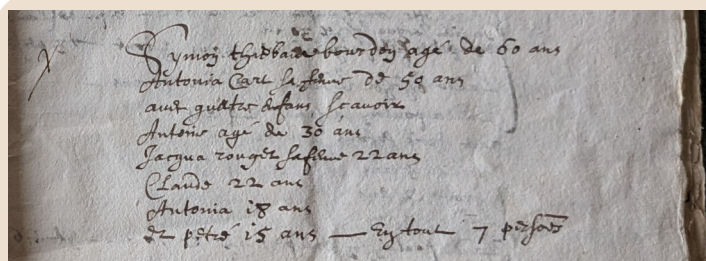 Symon thiebau bourdon agé de 60 ans
Antonia Cart sa feme de 50 ans
avec quattre enfans scavoir
Antoine agé de 30 ans
Jacqua rouget sa feme 22 ans
Claude 22 ans
Antonia 18 ans
et petre 15 ans — En tout 7 persoēs